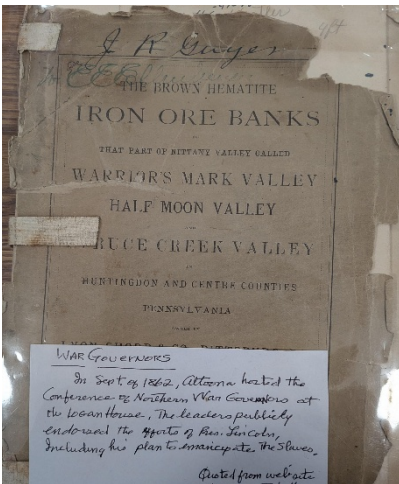 J R Gwyer
THE BROWN HEMATITE
IRON ORE BANKS
THAT PART OF NITTANY VALLEY CALLED
WARRIOR'S MARK VALLEY
HALF MOON VALLEY
RUCE CREEK VALLEY
HUNTINGDON AND CENTRE COUNTIES
PENNSYLVANIA
WAR GOVERNORS
In Sept of 1862, Altoona hosted the
Conference of Northern War Governors at
the Logan House, The leaders publicly
endorsed the efforts of Pres. Lincoln,
Including his plan to emancipate The Slaves.
Quoted from website